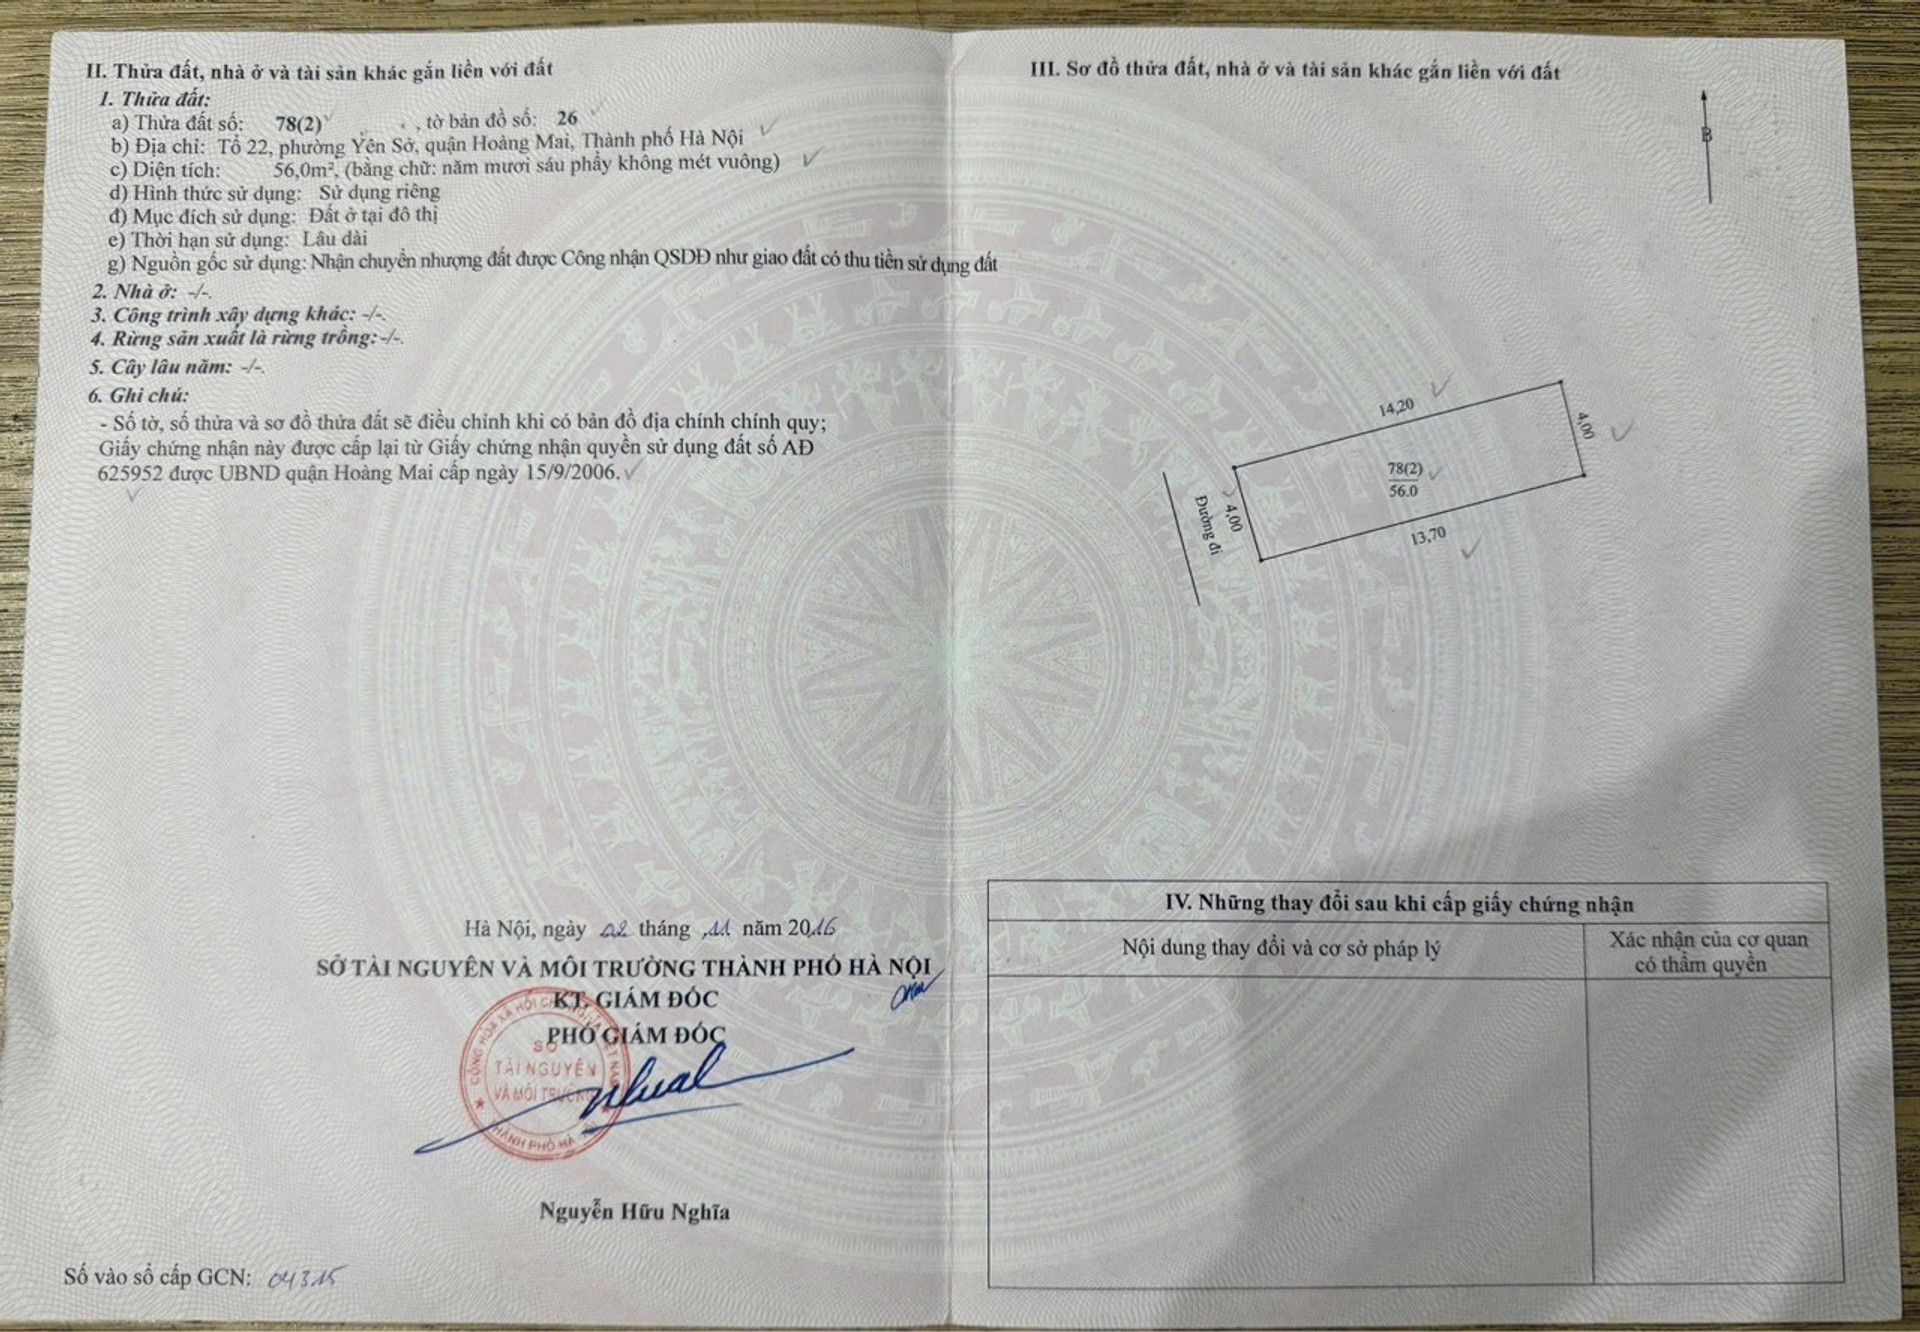 II. Thửa đất, nhà ở và tài sản khác gắn liền với đất
1. Thửa đất:
a) Thửa đất số: 78(2) , tờ bản đồ số: 26
b) Địa chỉ: Tổ 22, phường Yên Sở, quận Hoàng Mai, Thành phố Hà Nội
c) Diện tích: 56,0m², (bằng chữ: năm mươi sáu phẩy không mét vuông)
d) Hình thức sử dụng: Sử dụng riêng
đ) Mục đích sử dụng: Đất ở tại đô thị
e) Thời hạn sử dụng: Lâu dài
g) Nguồn gốc sử dụng: Nhận chuyển nhượng đất được Công nhận QSDĐ như giao đất có thu tiền sử dụng đất
2. Nhà ở: -/-.
3. Công trình xây dựng khác: -/-.
4. Rừng sản xuất là rừng trồng: -/-.
5. Cây lâu năm: -/-.
6. Ghi chú:
- Số tờ, số thửa và sơ đồ thửa đất sẽ điều chỉnh khi có bản đồ địa chính chính quy;
Giấy chứng nhận này được cấp lại từ Giấy chứng nhận quyền sử dụng đất số AĐ
625952 được UBND quận Hoàng Mai cấp ngày 15/9/2006.
Hà Nội, ngày 02 tháng 11 năm 2016
SỞ TÀI NGUYÊN VÀ MÔI TRƯỜNG THÀNH PHỐ HÀ NỘI
KT. GIÁM ĐỐC
PHÓ GIÁM ĐỐC
SỞ
TÀI NGUYÊN
VÀ MÔI TRƯỜNG
Nguyễn Hữu Nghĩa
Số vào sổ cấp GCN: 04315
III. Sơ đồ thửa đất, nhà ở và tài sản khác gắn liền với đất
B
14,20
4,00
78(2)
56.0
4,00
Đường đi
13,70
IV. Những thay đổi sau khi cấp giấy chứng nhận
Nội dung thay đổi và cơ sở pháp lý
Xác nhận của cơ quan
có thẩm quyền